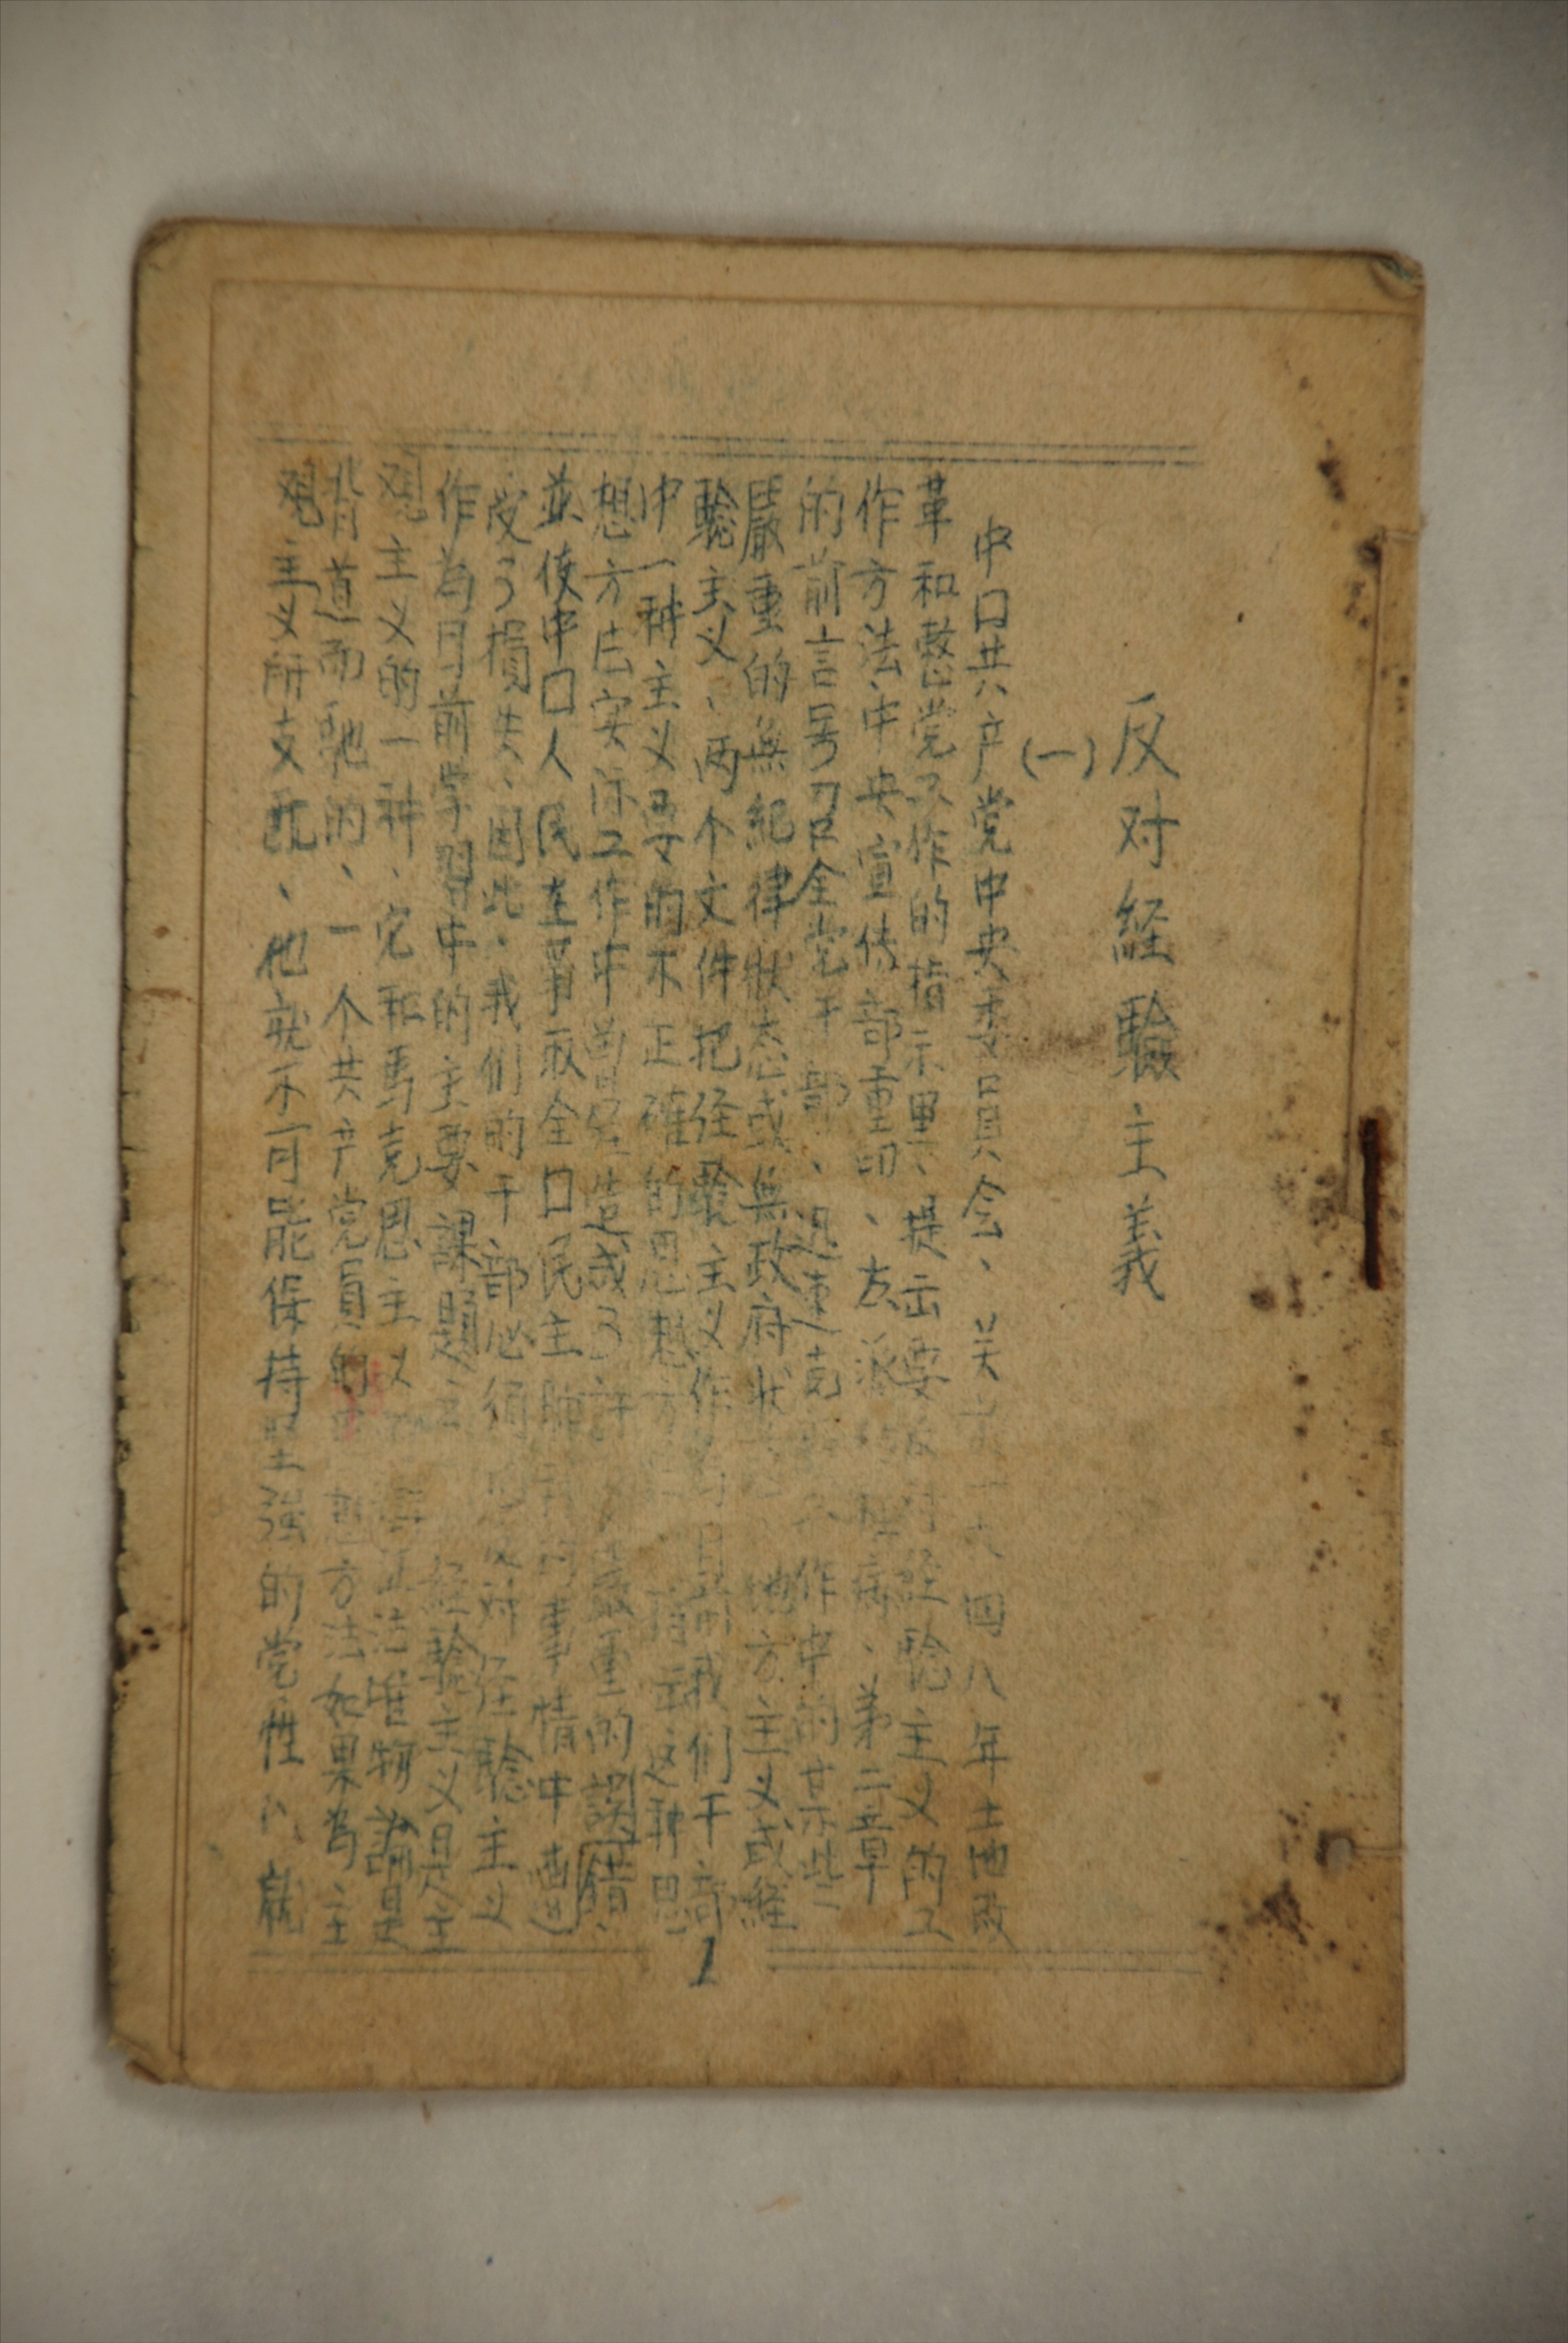 反对経驗主義
(一)
中囗共产党中央委員会、关于一九四八年土地改
革和整党工作的指示里、提出要反对経驗主义的工
作方法、中央宣传部重印、左派幼稚病、第二章
的前言号召全党干部、迅速克 作中的某些
嚴重的無紀律状态或無政府状态 地方主义或経
驗主义、两个文件把经驗主义作为目前我们干部
中一種主义要的不正確的思想方 指出这种思
想方法实际工作中曽経造成了许 严重的誤錯、
並使中囗人民在爭取全囗民主 的事情中遭
受了損失、因此、我们的干部必须 反对经驗主义
作為目前学習中的主要課題、 经驗主义是主
观主义的一种、它和馬克思主义 証法唯物論是
背道而馳的、一个共产党員的思想方法如果为主
观主义所支配、他就不可能保持坚强的党性、就
1